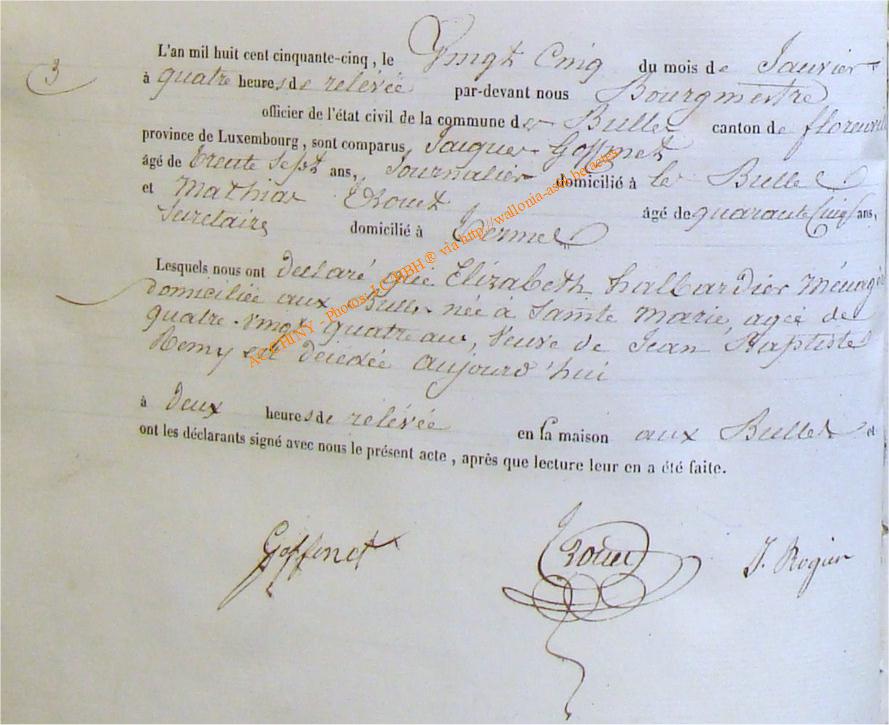 3
L'an mil huit cent cinquante-cinq, le Vingt Cinq du mois de Janvier
à quatre heures de relévée par-devant nous Bourgmestre
officier de l'état civil de la commune des Bulles canton de florenville
province de Luxembourg, sont comparus Jacques Goffinet
âgé de trente sept ans, Journalier domicilié à les Bulles
et Mathias Trouet âgé de quarante Cinq ans,
Secretaire domicilié à Termes
Lesquels nous ont declaré que Elizabeth hallardier Ménagère
domiciliée aux Bulles née à Sainte Marie, agée de
quatre-vingt quatre ans, Veuve de Jean Baptiste
Remy est décédée aujourd'hui
à deux heures de relévée en sa maison aux Bulles et
ont les déclarants signé avec nous le présent acte, après que lecture leur en a été faite.
Goffinet Trouet J. Rogier
ACCHINY - photos LC-RBH ® via http://wallonia-asbl.be/actes